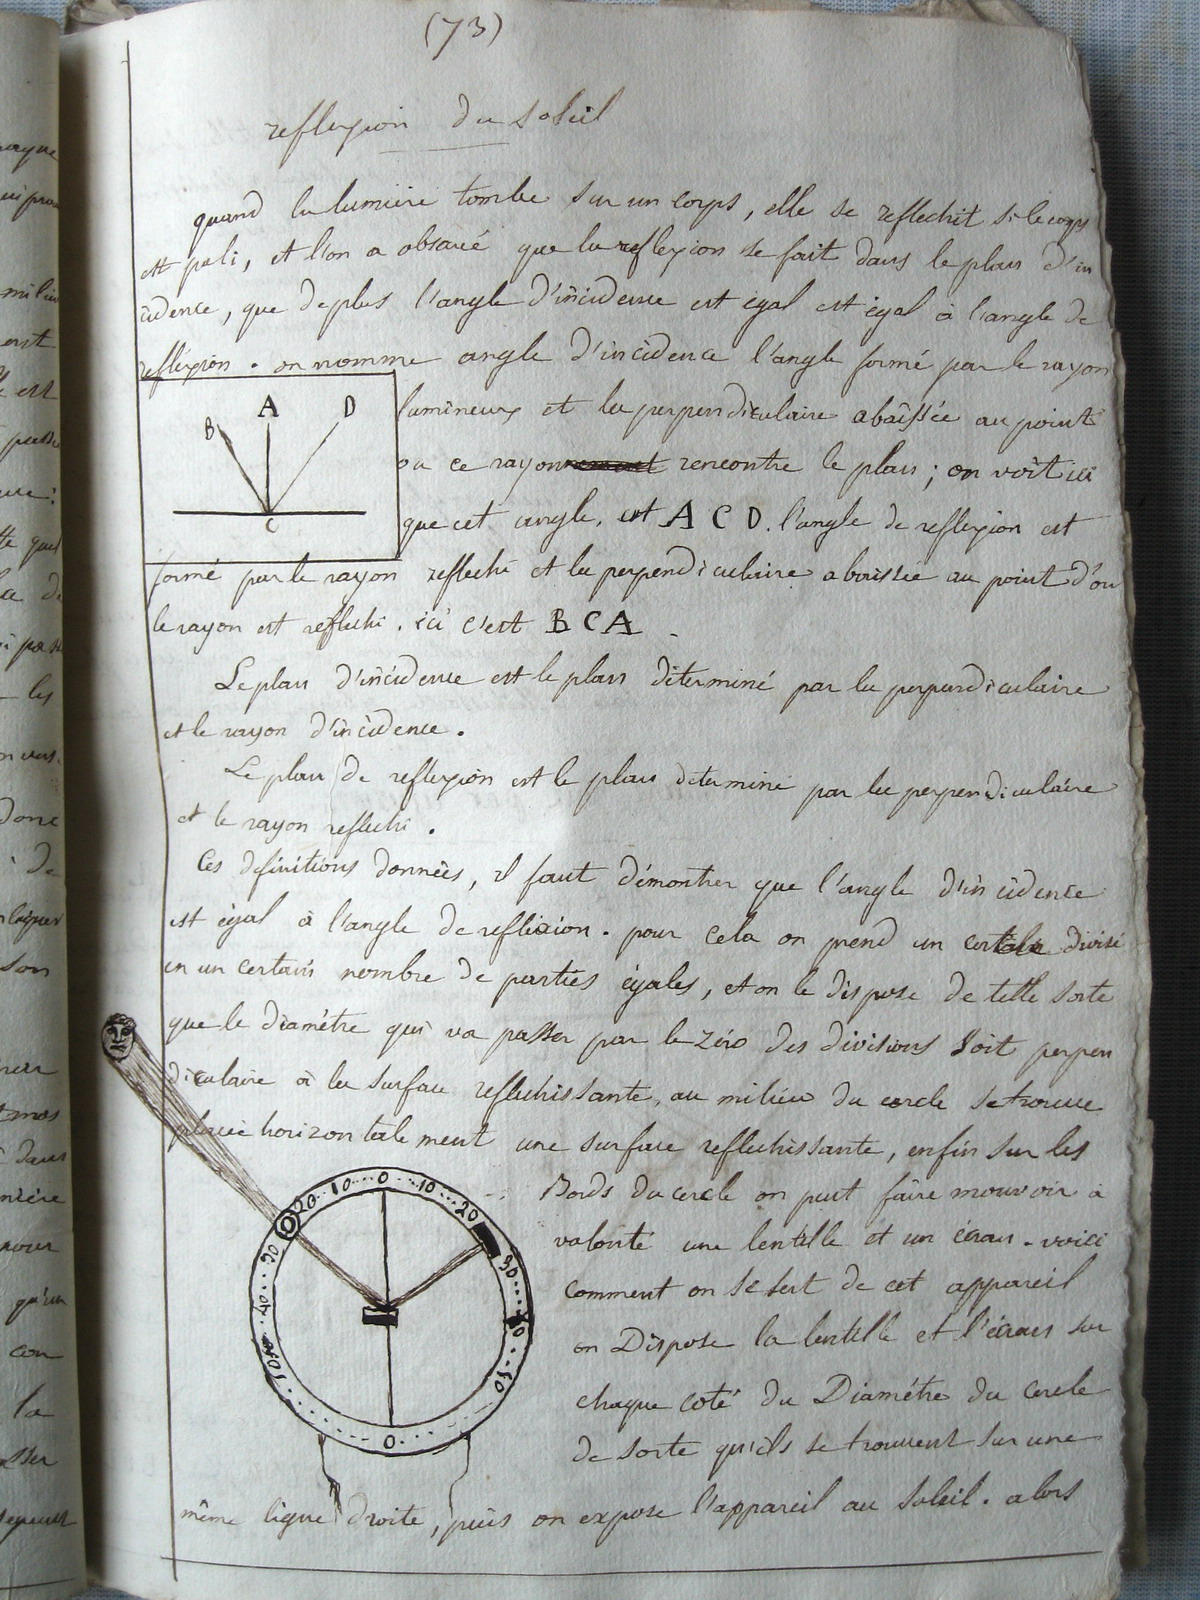 (73)
reflexion du soleil
quand la lumière tombe sur un corps, elle se reflechit si le corps
est poli, et l'on a observé que la reflexion se fait dans le plan d'in
cidence, que de plus l'angle d'incidence est egal est égal à l'angle de
refléxion. on nomme angle d'incidence l'angle formé par le rayon
lumineux et la perpendiculaire abaissée au point
ou ce rayon rencontre le plan ; on voit ici
que cet angle est A C D. l'angle de reflexion est
A D
B
C
formé par le rayon reflechi et la perpendiculaire abaissée au point d'ou
le rayon est reflechi. ici c'est B C A
Le plan d'incidence est le plan déterminé par la perpendiculaire
et le rayon d'incidence.
Le plan de reflexion est le plan determiné par la perpendiculaire
et le rayon reflechi.
Ces définitions données, il faut démontrer que l'angle d'incidence
est égal à l'angle de reflexion. pour cela on prend un cercle divisé
en un certain nombre de parties égales, et on le dispose de telle sorte
que le diamétre qui va passer par le zéro des divisions soit perpen
diculaire à la surface reflechissante, au milieu du cercle se trouve
placée horizontalement une surface reflechissante, enfin sur les
Bords du cercle on peut faire mouvoir à
volonté une lentille et un écran. voici
comment on se sert de cet appareil
on Dispose la lentille et l'écran sur
chaque coté du Diamétre du cercle
de sorte qu'ils se trouvent sur une
20 10 0 10 20
30 30
40 40
50 50
0
même ligne droite, puis on expose l'appareil au soleil. alors